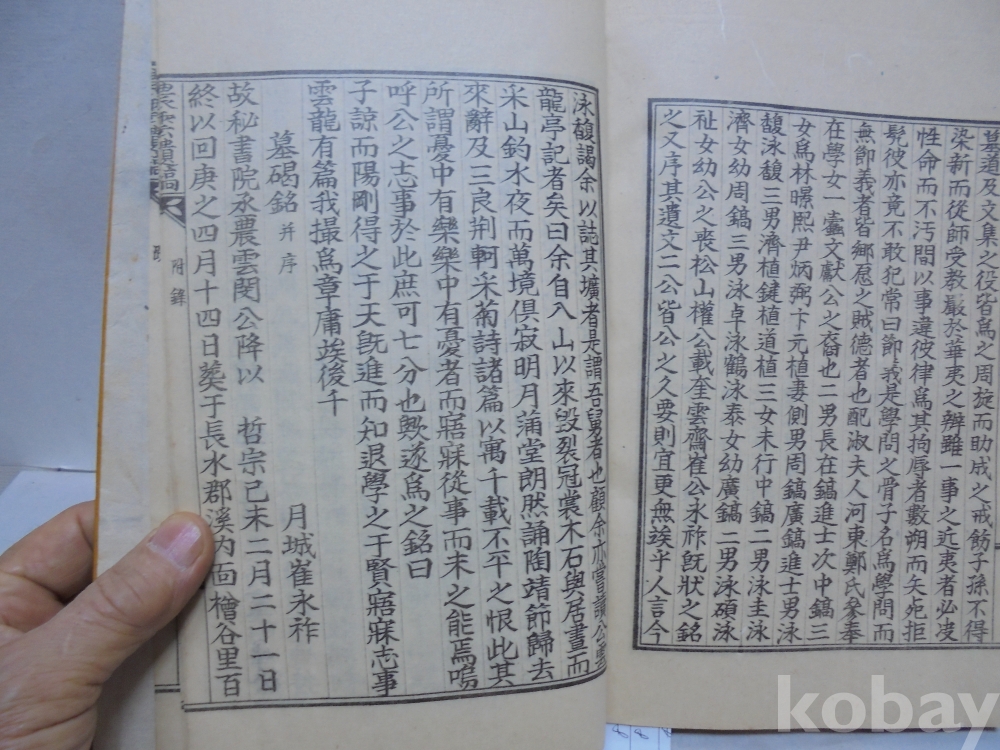 墓道及文集之役皆爲之周旋而助成之戒飭子孫不得
染新而從師受教嚴於華夷之辨雖一事之近夷者必浼
性命而不汚間以事違彼律爲其拘辱者數朔而矢死拒
髡彼亦竟不敢犯常曰節義是學問之骨子名爲學問而
無節義者皆鄕愿之賊德者也配淑夫人河東鄭氏參奉
在學女一蠹文獻公之裔也二男長在鎬進士次中鎬三
女爲林㬢熙尹炳弼卞元植妻側男周鎬廣鎬進士男泳
馥泳馥三男濟植鍵植道植三女未行中鎬二男泳圭泳
濟女幼周鎬三男泳卓泳鶴泳泰女幼廣鎬二男泳碩泳
祉女幼公之喪松山權公載奎雲齋崔公永祚旣狀之銘
之又序其遺文二公皆公之久要則宜更無竢乎人言今
泳馥謁余以誌其壙者是謂吾舅者也顧余亦嘗讀公雲
龍亭記者矣曰余自入山以來毁裂冠裳木石與居晝而
采山釣水夜而萬境俱寂明月蒲堂朗然誦陶靖節歸去
來辭及三良荆軻采菊詩諸篇以寓千載不平之恨此其
所謂憂中有樂樂中有憂者而寤寐從事而未之能焉嗚
呼公之志事於此庶可七分也歟遂爲之銘曰
子諒而陽剛得之于天旣進而知退學之于賢寤寐志事
雲龍有篇我撮爲章庸竢後千
墓碣銘 并序
月城崔永祚
故秘書院丞農雲閔公降以 哲宗己未二月二十一日
終以回庚之四月十四日葬于長水郡溪内面樻谷里百
附錄
kobay